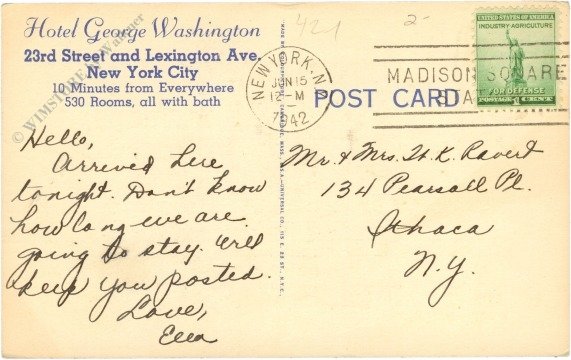 Hotel George Washington
23rd Street and Lexington Ave.
New York City
10 Minutes from Everywhere
530 Rooms, all with bath
Hello,
Arrived here
tonight. Don't know
how long we are
going to stay. Will
keep you posted.
Love,
421
2-
NEW YORK, N.Y.
JUN 15
12 - M
1942
MADISON SQUARE
UNITED STATES OF AMERICA
INDUSTRY-AGRICULTURE
FOR DEFENSE
POSTAGE 1 CENT
POST CARD
Mr. & Mrs. H. K. Ravert
134 Pearsall Pl.
Ithaca
N.Y.